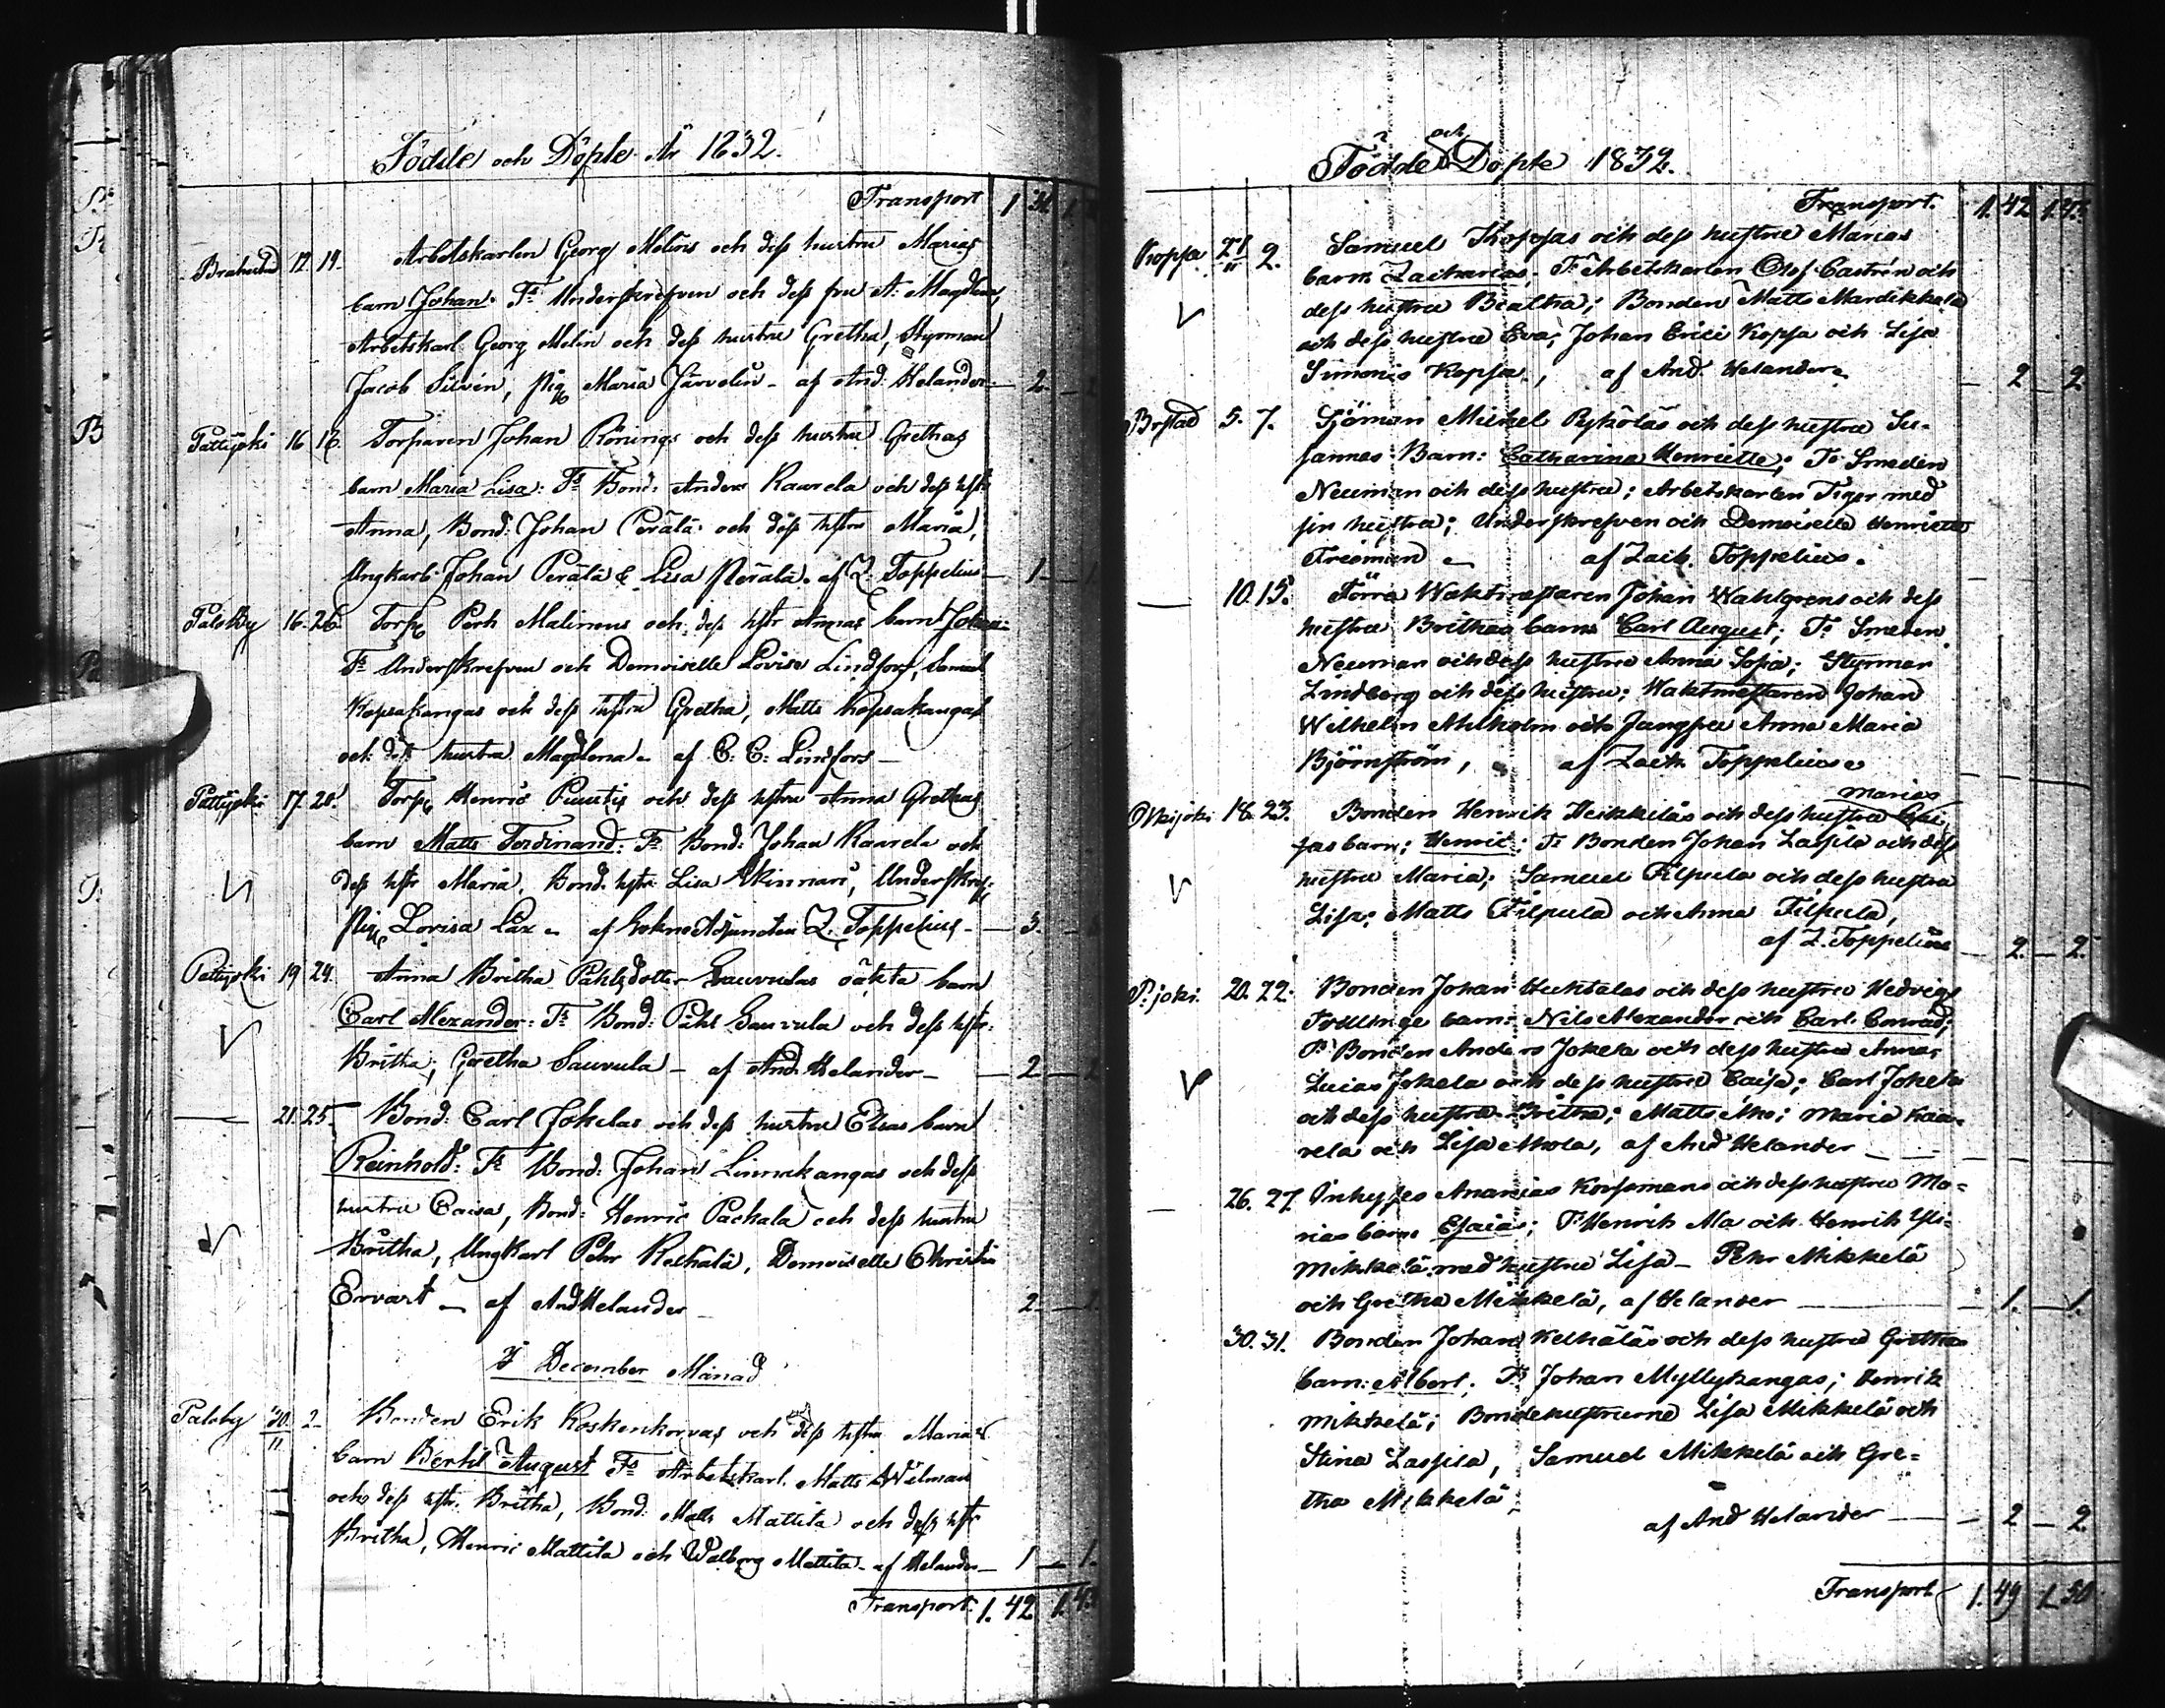 Födde och Döpte År 1832.
Transport 1 31 1
Brahestad 12. 19. Arbetskarlen Georg Melins och dess hustru Marias
barn Johan. Fs Underskrefven och dess fru A: Magdlena,
Arbetskarl Georg Melin och dess hustru Gretha, Styrman
Jacob Silvén, Pig. Maria Järvelin - af And. Helander - 2
Pattijoki 16 18. Torparen Johan Rönings och dess hustru Grethas
barn Maria Lisa: Fs Bond: Anders Kaarela och dess hstr
Anna, Bond: Johan Perälä och dess hstru Maria,
Ungkarl Johan Perälä & Lisa Perälä. af Z. Toppelius - 1 - 1
Paloby 16. 26. Torp. Pehr Malinens och dess hstr Annas barn Johan:
Fs Underskrefven och Demoiselle Lovisa Lindfors, Samuel
Kopsakangas och dess hustru Gretha, Matts Kopsakangas
och dess hustru Magdlena - af C: C: Lindfors -
Pattijoki 17. 20. Torp. Henric Puustis och dess hstru Anna Grethas
barn Matts Ferdinand: Fs Bond: Johan Kaarela och
dess hstr Maria, Bond. hstr Lisa Akinnari, Underskref:
Pig. Lovisa Lax - af Sokne Adjuncten Z. Toppelius - 3.
Pattijoki 19 24. Anna Britha Påhlsdotter Sauvulas oäkta barn
Carl Alexander: Fs Bond: Påhl Sauvula och dess hstr.
Britha; Gretha Sauvula - af And. Helander - 2 - 2
21. 25. Bond: Carl Jokelas och dess hustru Elsas barn
Reinhold: Fs Bond: Johan Linnakangas och dess
hustru Caisa, Bond: Henric Packala och dess hustru
Britha, Ungkarl Pehr Kelhälä, Demoiselle Christin
Ervast - af And Helander 2.
I December Månad
Paloby 30/11 2 Bonden Erik Koskenkorvas och dess hstru Marias
barn Bertil August Fs Arbetskarl. Matts Wilman
och dess hstr. Britha, Bond: Matts Mattila och dess hstr
Britha, Henric Mattila och Walborg Mattila - af Helander - 1 - 1.
Transport. 1. 42 1.43
Födde och Döpte 1832.
Transport. 1. 42 1.43.
Kopsa 21/11 2. Samuel Kopsas och dess hustru Marias
barn Zacharias; Fs Arbetskarlen Olof Castrén och
dess hustru Beatha; Bonden Matts Mardikkala
och dess hustru Eva; Johan Erici Kopsa och Lisa
Simonis Kopsa, af And. Helander - 2 - 2
Brstad 5. 7. Sjöman Mickel Pyköläs och dess hustru Su-
sannes Barn: Catharina Henriette; Fs Smeden
Neuman och dess hustru; Arbetskarlen Tiger med
sin hustru; Underskrefven och Demoiselle Henriette
Freoman - af Zach. Toppelius.
10. 15. Förra Waktmästaren Johan Wahlgrens och dess
hustru Brithas barn Carl August; Fs Smeden
Neuman och dess hustru Anna Sofia; Styrman
Lindberg och dess hustru; Waktmästaren Johan
Wilhelm Ahlholm och Jungfru Anna Maria
Björnström, af Zach Toppelius
Marias
Olkijoki 18. 23. Bonden Henrik Heikkiläs och dess hustru Cai-
sas barn; Henric; Fs Bonden Johan Lassila och dess
hustru Maria; Samuel Filpula och dess hustru
Lisa; Matts Filpula och Anna Filpula,
af Z. Toppelius 2. - 2.
P.joki. 20. 22. Bonden Johan Huhtalas och dess hustru Hedvigs
Tvillinge barn: Nils Alexander och Carl Conrad;
Fs Bonden Anders Jokela och dess hustru Anna;
Lucas Jokela och dess hustru Caisa; Carl Jokela
och dess hustru Britha; Matts Aho; Maria Kaa-
rela och Lisa Ahola, af And Helander
26. 27. Inhyses Ananias Korsomans och dess hustru Ma-
rias barn Esaias; Fs Henrik Ala och Henrik Yli-
mikkelä med hustru Lisa - Pehr Mikkelä
och Gretha Mikkelä, af Helander 1. - 1.
30. 31. Bonden Johan Kelhäläs och dess hustru Grethas
barn: Albert; Fs Johan Myllykangas; Henrik
Mikkelä; Bondehustrurne Lisa Mikkelä och
Stina Lassila, Samuel Mikkelä och Gre-
tha Mikkelä,
af And Helander - 2 - 2
Transport 1.49 1.50